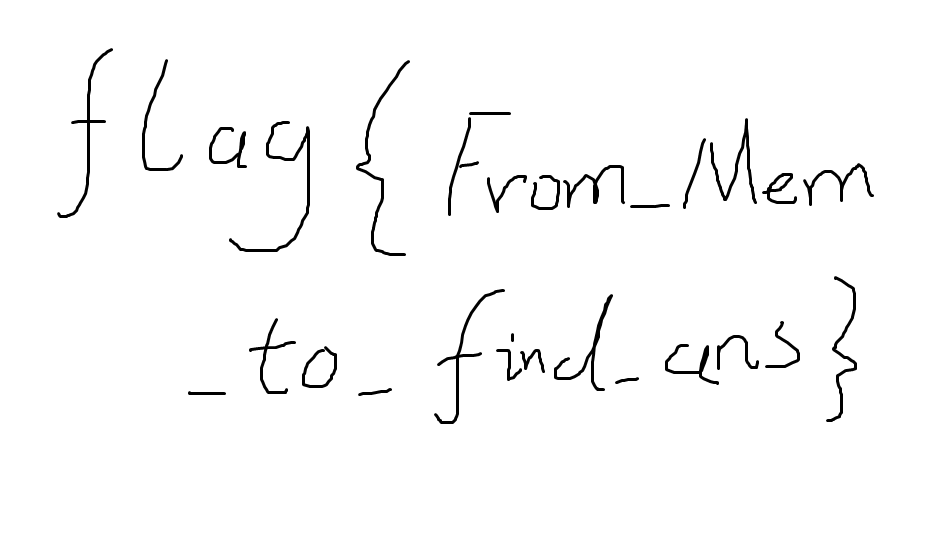 flag{From_Mem
_to_find_ans}